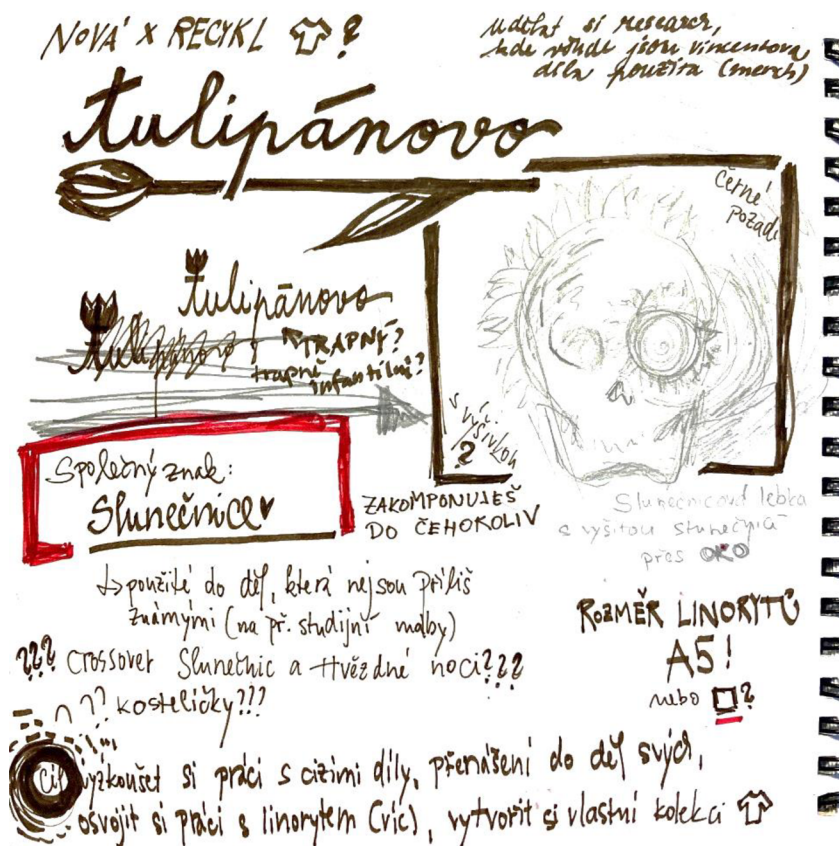 NOVÁ x RECYKL ?
Udělat si research,
kde všude jsou vincentova
díla použita (merch)
tulipánovo
černé
pozadí
tulipánovo
tulipánovo ?
TRAPNÝ?
trapně
infantilní?
s výšivkou
?
Společný znak:
Slunečnice♥
ZAKOMPONUJEŠ
DO ČEHOKOLIV
Slunečnicová lebka
s vyšitou slunečnicí
přes OKO
↳ použité do děl, která nejsou příliš
známými (na př. studijní malby)
??? Crossover Slunečnic a Hvězdné noci???
?? kosteličky???
ROZMĚR LINORYTŮ
A5!
nebo □?
Cíl vyzkoušet si práci s cizími díly, přenášení do děl svých,
osvojit si práci s linorytem (víc), vytvořit si vlastní kolekci